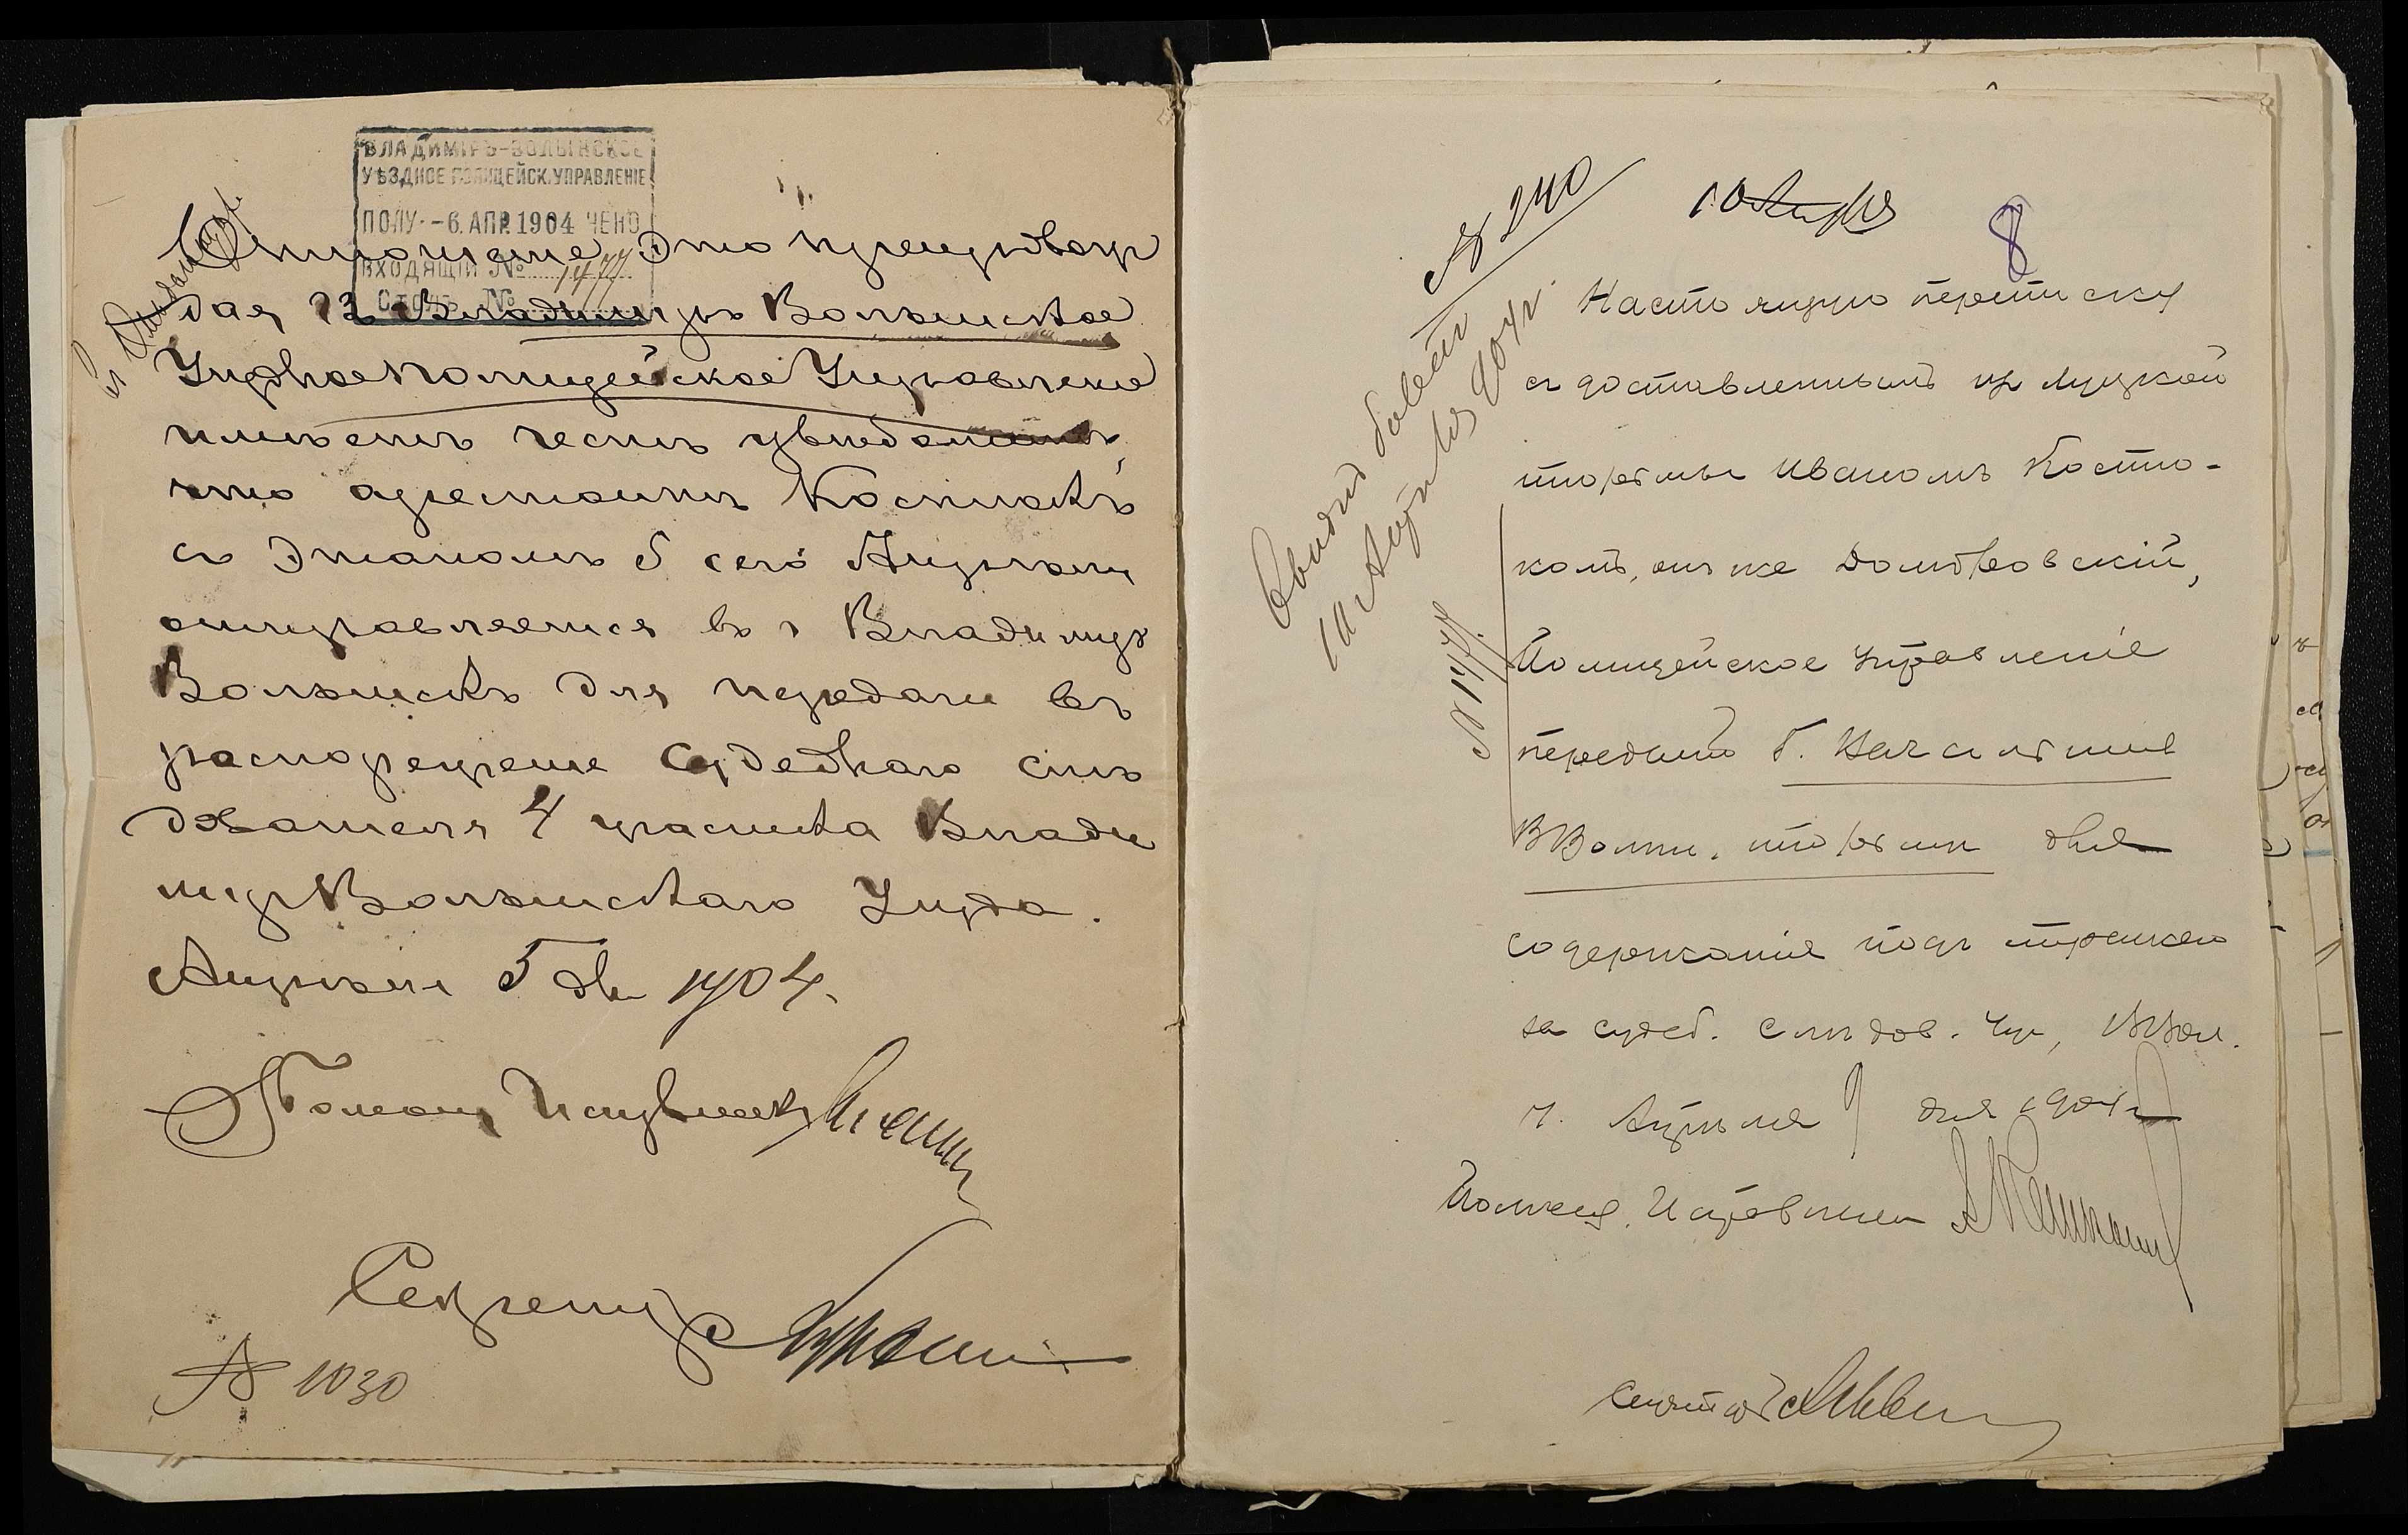 ВЛАДИМІРЪ-ВОЛЫНСКОЕ
УѢЗДНОЕ ПОЛИЦЕЙСК. УПРАВЛЕНІЕ
ПОЛУ- -6. АПР. 1904 ЧЕНО
ВХОДЯЩІЙ № 1477
Столъ №
Отношение это препровож
дая въ Владимиръ Волынское
Уѣздное Полицейское Управление
имѣетъ честь увѣдомить,
что арестантъ Костюкъ
съ Этапомъ 5 сего Апрѣля
отправляется въ г Владимир
Волынскъ для передачи въ
распоряжение Судебного слѣ
дователя 4 участка Влади
мирВолынскаго Уѣзда.
Апрѣля 5 дня 1904.
Помощ Исправника
Секретарь
№ 1030
№ 240
10 Апрѣля
8
10 Апрѣля 904 г.
№ 1477.
Настоящую переписку
съ доставленнымъ изъ Луцкой
тюрьмы Иваномъ Костю-
комъ, онъ же Домбровскій,
Полицейское Управленіе
передаетъ Г. Начальнику
ВВолын. тюрьмы для
содержанія подъ стражею
за судеб. следов. 4 уч, ВВол.
у. Апрѣля 9 дня 1904 г
Помощ. Исправника
Секретарь